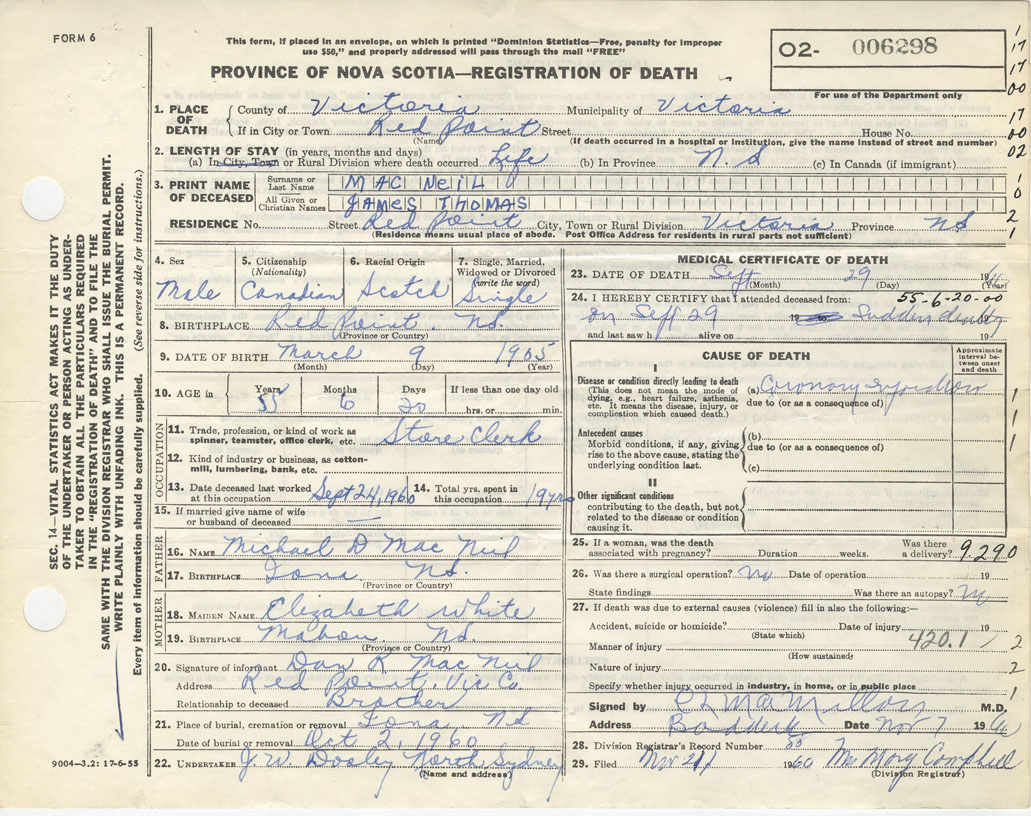 FORM 6
This form, if placed in an envelope, on which is printed "Dominion Statistics—Free, penalty for improper
use $50," and properly addressed will pass through the mail "FREE"
O2- 006298
For use of the Department only
PROVINCE OF NOVA SCOTIA—REGISTRATION OF DEATH
1
17
17
00
17
00
02
1
0
2
1
1. PLACE OF DEATH
County of Victoria Municipality of Victoria
If in City or Town Red Point Street House No.
(Name) (If death occurred in a hospital or institution, give the name instead of street and number)
2. LENGTH OF STAY (in years, months and days)
(a) In City, Town or Rural Division where death occurred Life (b) In Province N. S (c) In Canada (if immigrant)
3. PRINT NAME OF DECEASED
Surname or Last Name MAC NEIL
All Given or Christian Names JAMES THOMAS
RESIDENCE No. Street Red Point City, Town or Rural Division Victoria Province NS
(Residence means usual place of abode. Post Office Address for residents in rural parts not sufficient)
4. Sex
Male
5. Citizenship
(Nationality)
Canadian
6. Racial Origin
Scotch
7. Single, Married,
Widowed or Divorced
(write the word)
Single
8. BIRTHPLACE Red Point. NS.
(Province or Country)
9. DATE OF BIRTH March 9 1905
(Month) (Day) (Year)
10. AGE in
Years Months Days If less than one day old
55 6 20 hrs. or min.
OCCUPATION
11. Trade, profession or kind of work as
spinner, teamster, office clerk, etc. Store Clerk
12. Kind of industry or business, as cotton-
mill, lumbering, bank, etc.
13. Date deceased last worked
at this occupation Sept 24, 1960
14. Total yrs. spent in
this occupation 19 yrs
15. If married give name of wife
or husband of deceased —
FATHER
16. NAME Michael D Mac Neil
17. BIRTHPLACE Iona NS.
(Province or Country)
MOTHER
18. MAIDEN NAME Elizabeth White
19. BIRTHPLACE Mabou. NS.
(Province or Country)
20. Signature of informant Dan R Mac Neil
Address Red Point, Vic Co.
Relationship to deceased Brother
21. Place of burial, cremation or removal Iona NS
Date of burial or removal Oct 2, 1960
22. UNDERTAKER J. W. Dooley North Sydney
(Name and address)
MEDICAL CERTIFICATE OF DEATH
23. DATE OF DEATH Sept 29 19
(Month) (Day) (Year)
55-6-20-00
24. I HEREBY CERTIFY that I attended deceased from:
on Sept 29 19 Sudden death 19
and last saw h alive on 19
CAUSE OF DEATH
Approximate
interval be-
tween onset
and death
I
Disease or condition directly leading to death
(This does not mean the mode of
dying, e.g., heart failure, asthenia,
etc. It means the disease, injury, or
complication which caused death.)
(a) Coronary
due to (or as a consequence of)
Antecedent causes
Morbid conditions, if any, giving
rise to the above cause, stating the
underlying condition last.
(b)
due to (or as a consequence of)
(c)
II
Other significant conditions
contributing to the death, but not
related to the disease or condition
causing it.
1
1
1
25. If a woman, was the death
associated with pregnancy? Duration weeks. Was there
a delivery? 9290
26. Was there a surgical operation? No Date of operation 19
State findings Was there an autopsy? No
27. If death was due to external causes (violence) fill in also the following:—
Accident, suicide or homicide? Date of injury 19
(State which)
Manner of injury 420.1 / 2
(How sustained)
Nature of injury 2
Specify whether injury occurred in industry, in home, or in public place 1
Signed by C L MacMillan M.D.
Address Baddeck Date Nov 7 1960
28. Division Registrar's Record Number 33
29. Filed Nov 21 1960 Mrs Mary Campbell
(Division Registrar)
SEC. 14—VITAL STATISTICS ACT MAKES IT THE DUTY
OF THE UNDERTAKER OR PERSON ACTING AS UNDER-
TAKER TO OBTAIN ALL THE PARTICULARS REQUIRED
IN THE "REGISTRATION OF DEATH" AND TO FILE THE
SAME WITH THE DIVISION REGISTRAR WHO SHALL ISSUE THE BURIAL PERMIT.
WRITE PLAINLY WITH UNFADING INK. THIS IS A PERMANENT RECORD.
Every item of information should be carefully supplied. (See reverse side for instructions.)
9004—3.2: 17-6-55